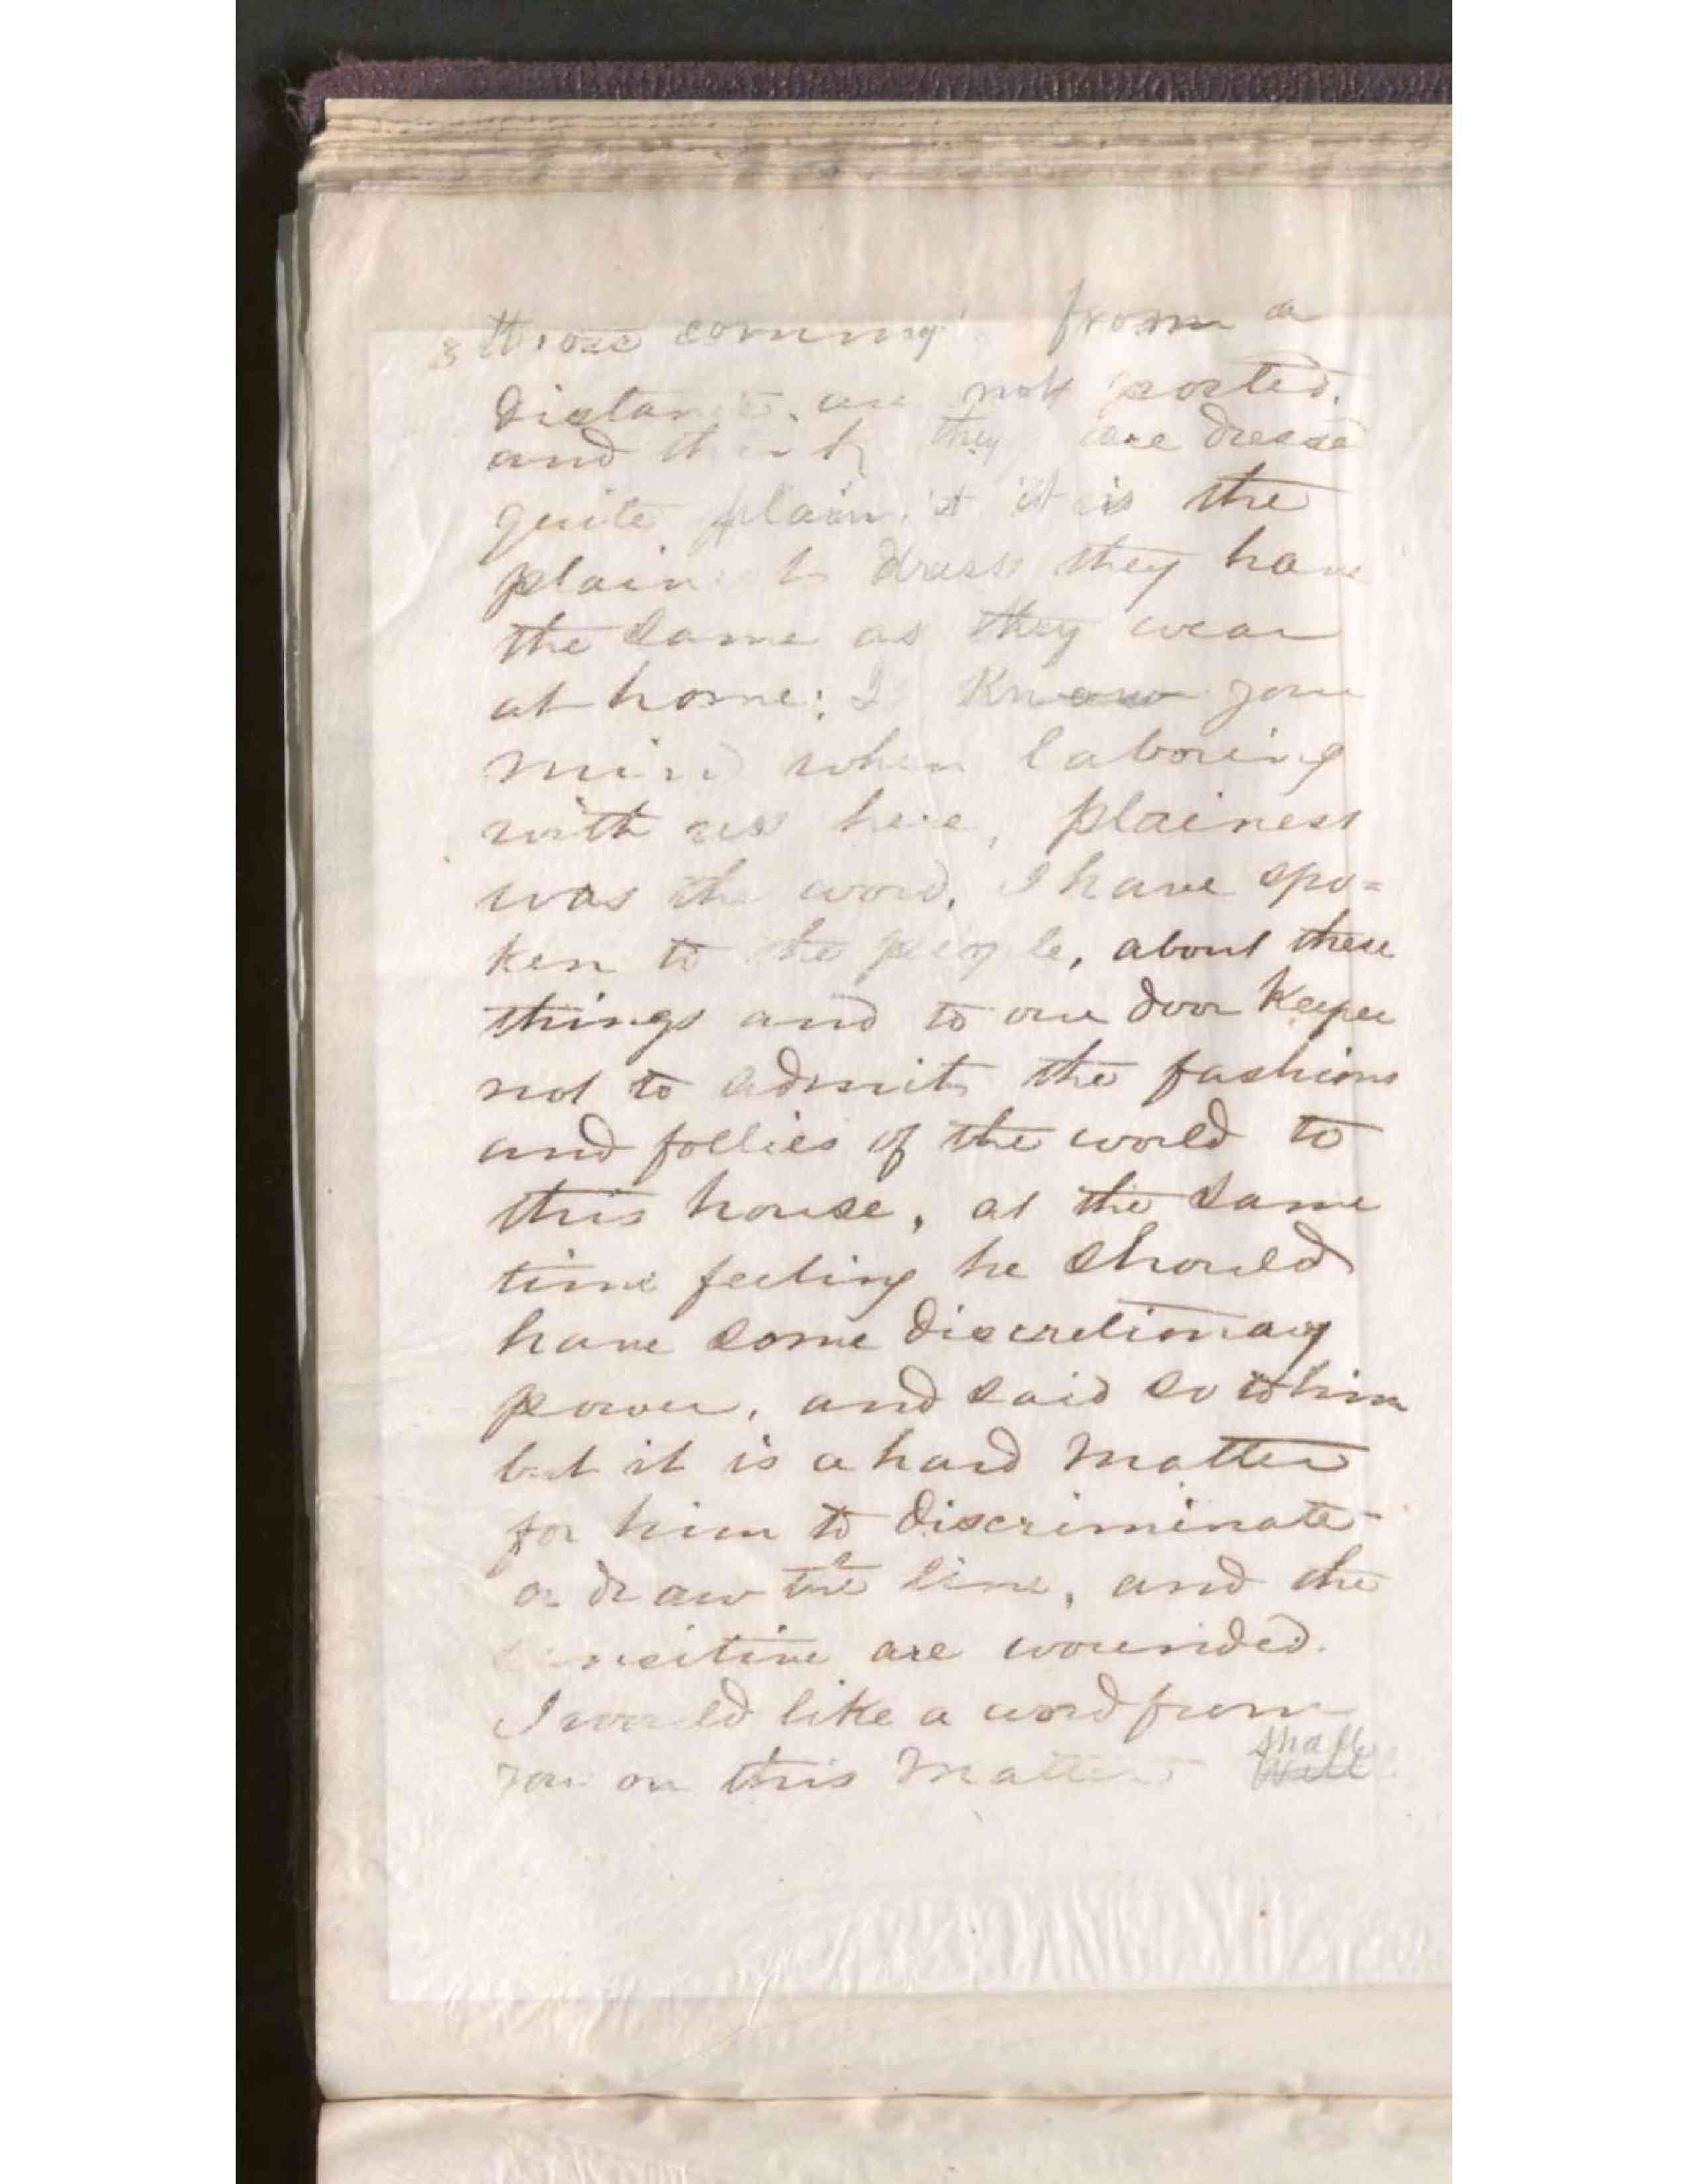 3 those coming from a
distance, are not posted,
and think they are dressed
quite plain, it is the
plainest dress they have
the same as they wear
at home; I know your
mind when laboring
with us here, plainess
was the word, I have spo=
ken to the people, about these
things and to our door Keeper
not to admit the fashions
and follies of the world to
this house, at the same
time feeling he should
have some discretionary
power, and said so to him
but it is a hard matter
for him to discriminate
or draw the line, and the
sensitive are wounded.
I would like a word from
you on this matter shall